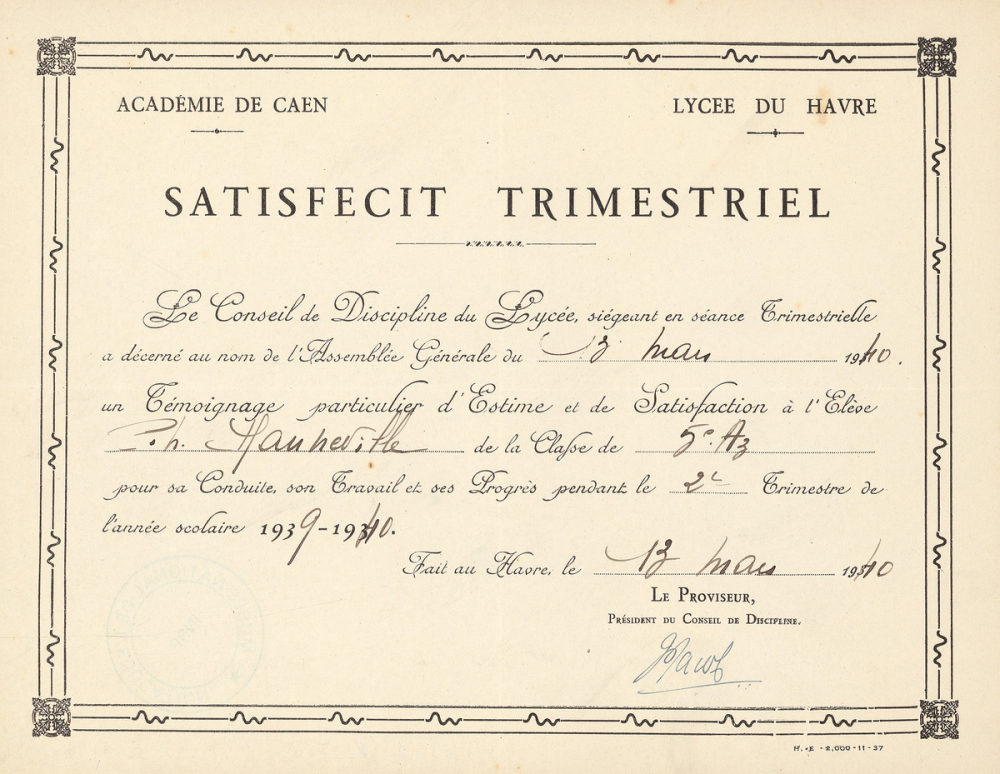 ACADÉMIE DE CAEN
LYCEE DU HAVRE
SATISFECIT TRIMESTRIEL
Le Conseil de Discipline du Lycée, siégeant en séance Trimestrielle
a décerné au nom de l'Assemblée Générale du 13 mars 1940.
un Témoignage particulier d'Estime et de Satisfaction à l'Elève
Ph. Hanneville de la Classe de 5e A3
pour sa Conduite, son Travail et ses Progrès pendant le 2e Trimestre de
l'année scolaire 1939-1940.
Fait au Havre, le 13 mars 1940
LE PROVISEUR,
PRÉSIDENT DU CONSEIL DE DISCIPLINE.
H.-E - 2,000-11-37